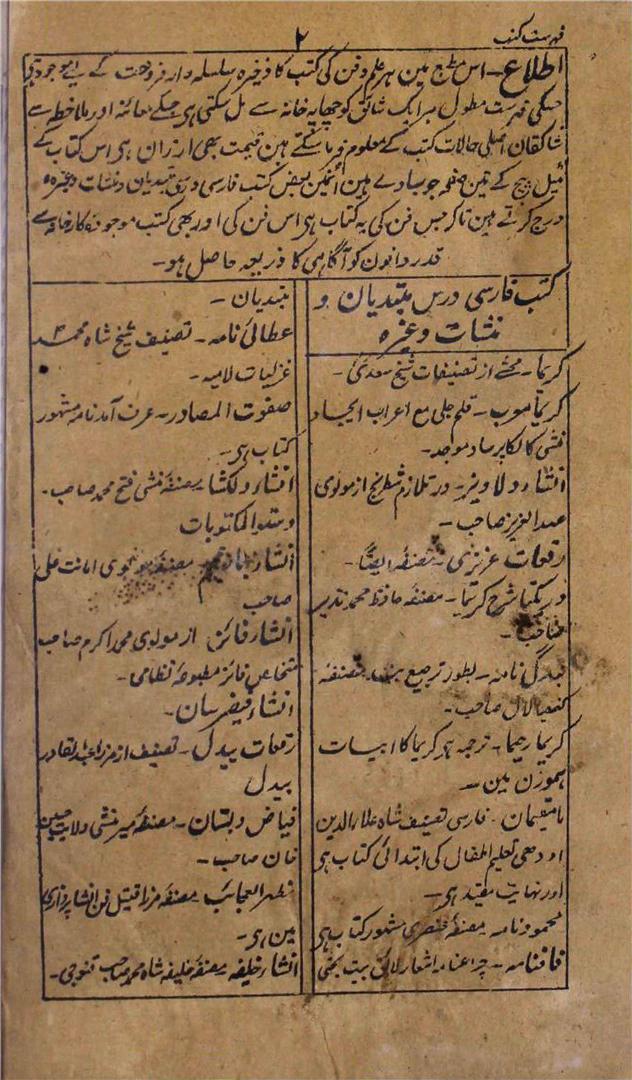 فہرست کتب
۲
اطلاع۔ اس مطبع مین ہر علم و فن کی کتب کا ذخیرہ سلسلہ وار فروخت کے لیے موجود ہی
جسکی فہرست مطول ہر ایک شائق کو چھاپہ خانہ سے مل سکتی ہی جسکے معائنہ اور ملاحظہ سے
شائقان اصلی حالات کتب کے معلوم فرما سکتے ہین قیمت بھی ارزان ہی اس کتاب کے
ٹیل پیج کے تین صفحہ جو سادے ہین انمین بعض کتب فارسی درسی مبتدیان و منشآت وغیرہ
درج کرتے ہین تاکہ جس فن کی یہ کتاب ہی اس فن کی اور بھی کتب موجودہ کارخانہ سے
قدردانون کو آگاہی کا ذریعہ حاصل ہو۔
کتب فارسی درس مبتدیان و
منشآت وغیرہ
کریما۔ محشے از تصنیفات شیخ سعدی۔
کریما معرب۔ قلم جلی مع اعراب ایجاد
منشی کالکا پرساد موجد۔
انشاء دلاویز۔ در تلازم شطرنج از مولوی
عبد العزیز صاحب۔
رقعات عزیزی۔ مصنفہ ایضاً۔
در یکتا شرح کریما۔ مصنفہ حافظ محمد نذیر
صاحب۔
نامہ۔ بطور ترجیع بند مصنفہ
کنھیا لال صاحب۔
کریما رحیما۔ ترجمہ ہر کریما کا ابیات
ہموزن مین۔
مامقیمان۔ فارسی تصنیف شاہ علاء الدین
اودھی تعلیم اطفال کی ابتدائی کتاب ہی
اور نہایت مفید ہی۔
محمود نامہ۔ مصنفہ عنصری مشہور کتاب ہی
اشعار لائق بیت بحثی
مبتدیان۔
عطائی نامہ۔ تصنیف شیخ شاہ محمد
غزلیات لامیہ۔
صفوت المصادر۔ عرف آمدنامہ مشہور
کتاب ہی۔
انشاء دلکشا۔ مصنفہ منشی فتح محمد صاحب۔
دستور المکتوبات
انشاء مصنفہ مولوی امانت علی
صاحب
انشاء فائز۔ از مولوی محمد اکرم صاحب
متخلص فائز مطبوعہ نظامی۔
انشاء فیض رسان۔
رقعات بیدل۔ تصنیف از مرزا عبد القادر
بیدل
فیاض دبستان۔ مصنفہ میر منشی ولایت حسین
خان صاحب۔
مظہر العجائب۔ مصنفہ مرزا قتیل فن انشا پردازی
مین ہی۔
انشاء خلیفہ مصنفہ خلیفہ شاہ محمد صاحب قنوجی۔